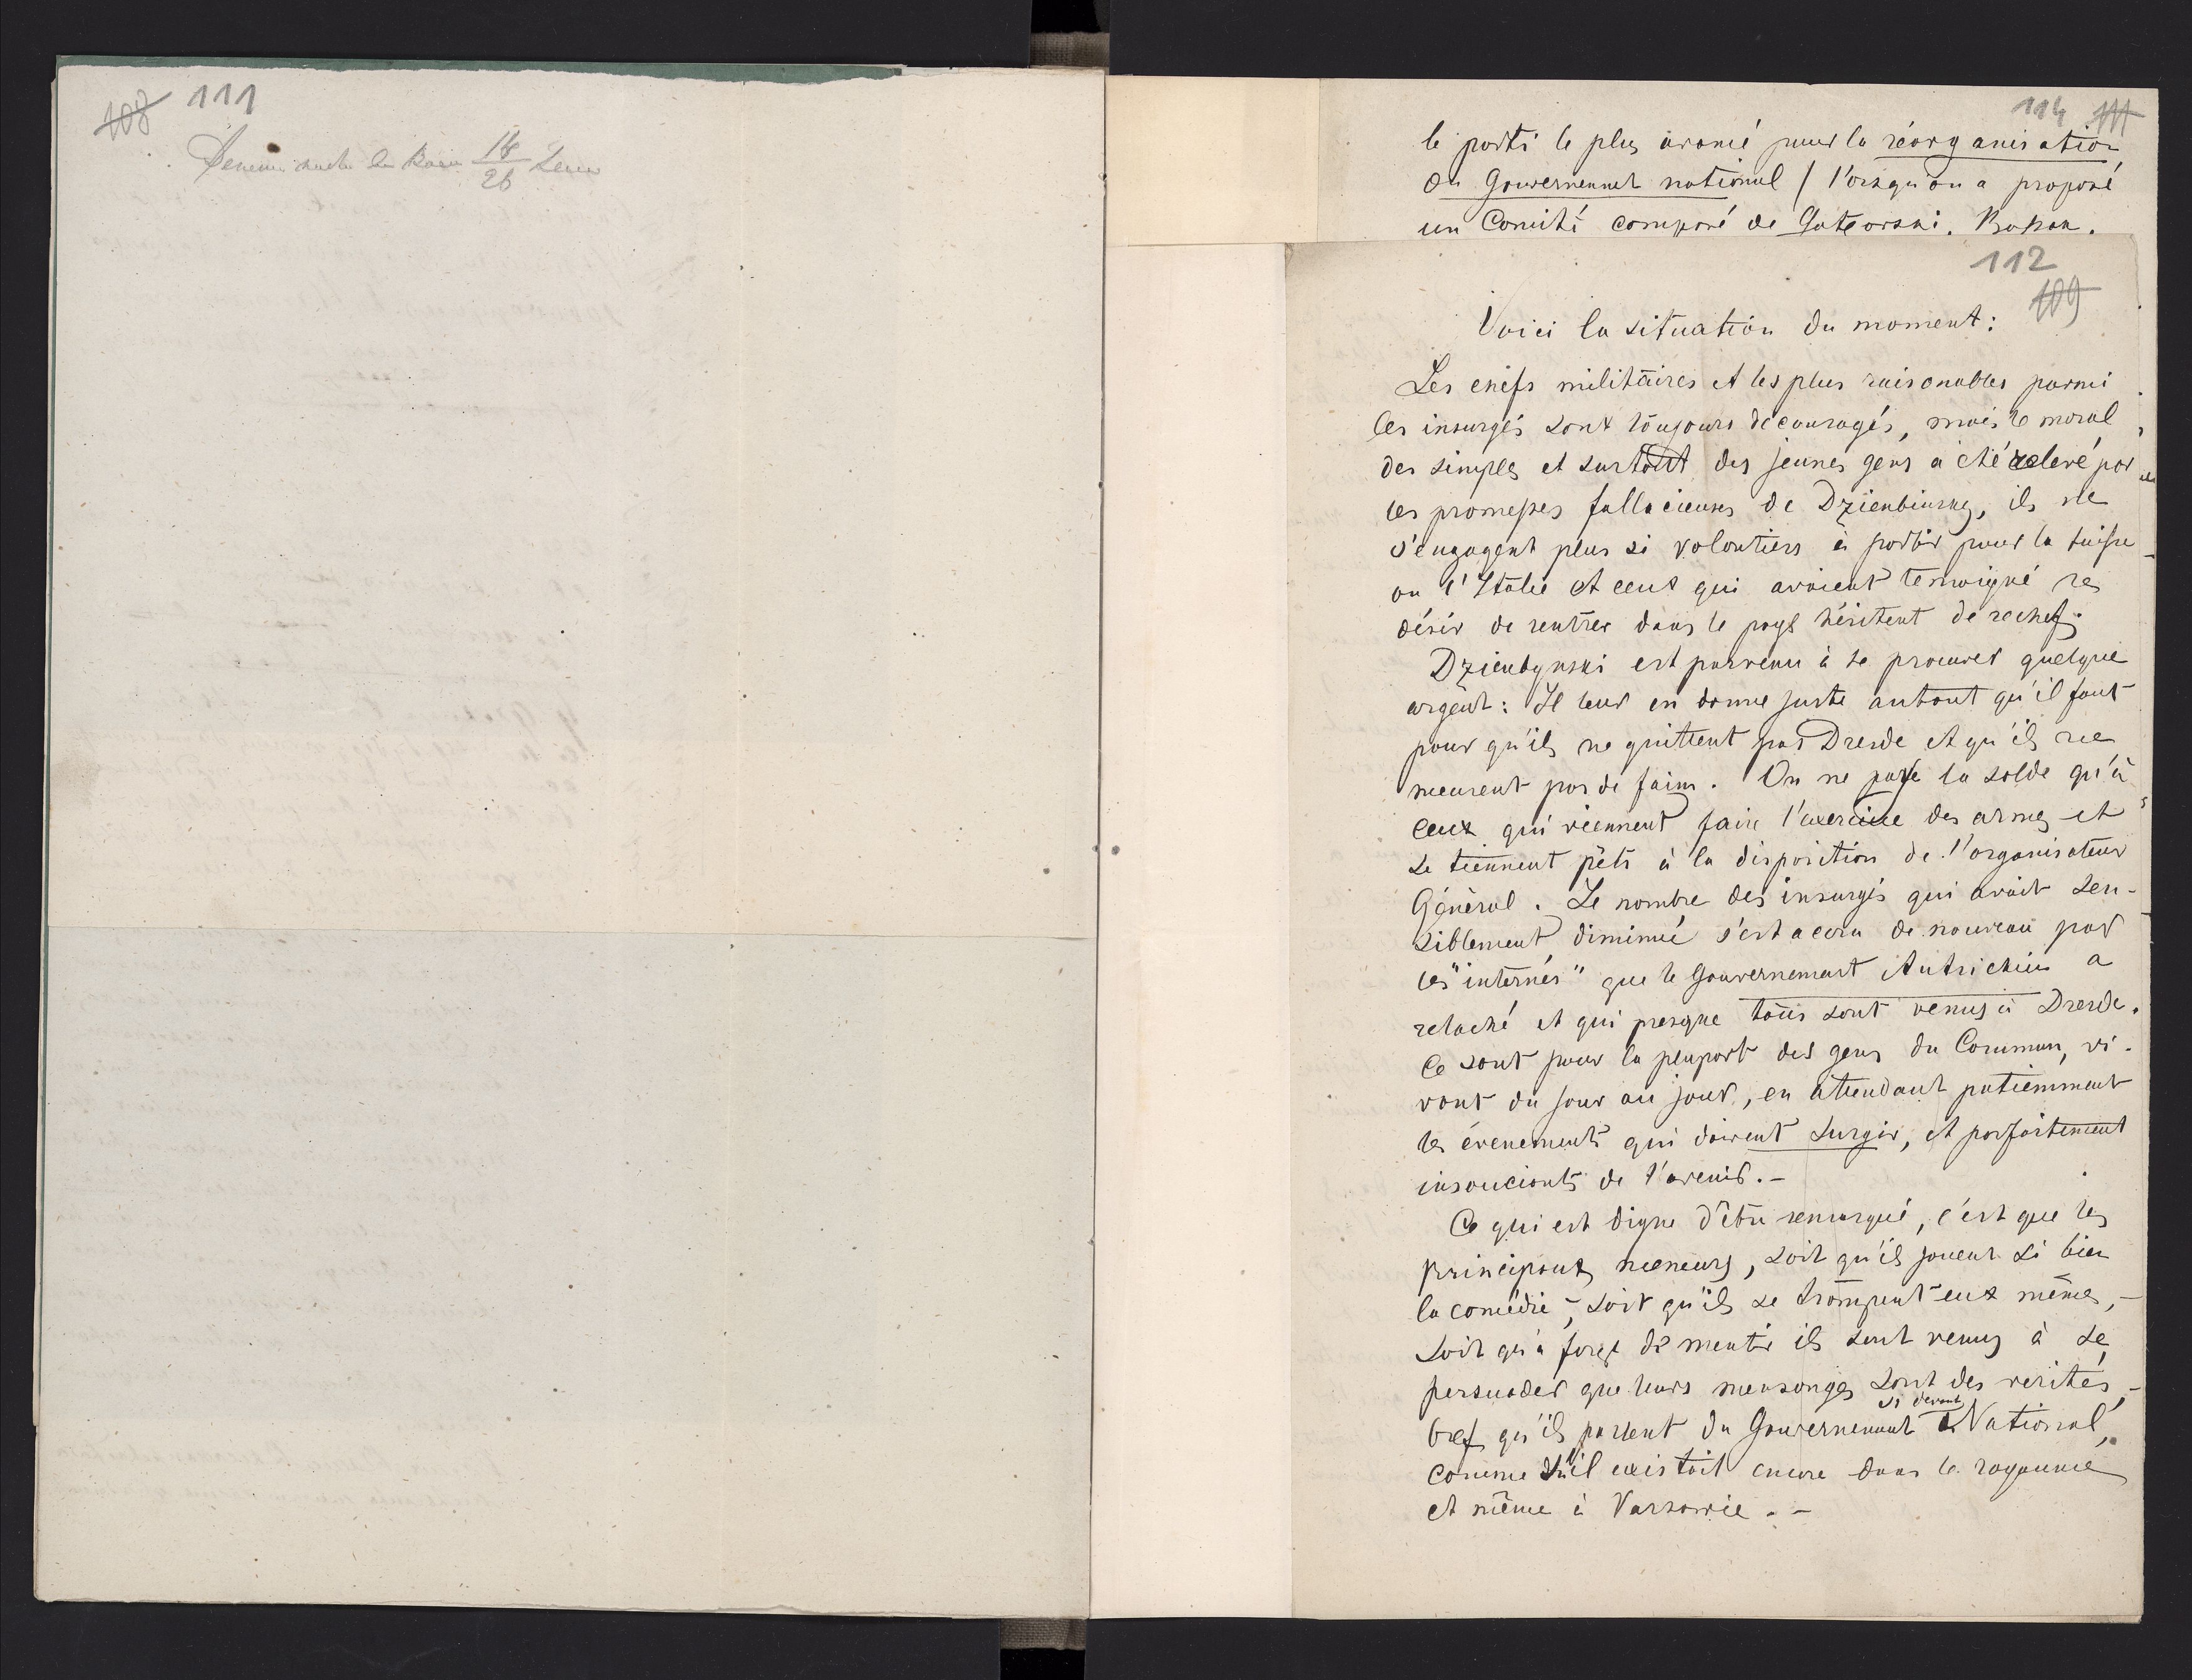 108 111
16
26
114 111
le parti le plus avancé pour la réorganisation
du Gouvernement national / l'orsqu'on a proposé
un Comité composé de Guteorski. Bosak.
112
109
Voici la situation du moment:
Les chefs militaires et les plus raisonables parmi
les insurgés sont toujours découragés, mais le moral
des simples et surtout des jeunes gens a été relevé par
les promesses fallacieuses de Dzienbinsky, ils ne
s'engagent plus si volontiers à partir pour la suisse
ou l'Italie et ceux qui avaient temoigné le
désir de rentrer dans le pays hésitent de rechef.
Dzienbynski est parvenu à se procurer quelque
argent: Il leur en donne juste autant qu'il faut
pour qu'ils ne quittent pas Dresde et qu'ils ne
meurent pas de faim. On ne paye la solde qu'à
ceux qui viennent faire l'exercice des armes et
se tiennent pêts à la disposition de l'organisateur
Général. Le nombre des insurgés qui avait sen-
siblement diminué s'est accru de nouveau par
les "internés" que le Gouvernement Autrichien a
relaché et qui presque tous sont venus à Dresde.
Ce sont pour la plupart des gens du Commun, vi-
vant du jour au jour, en attendant patiemment
les évenements qui doivent surgir, et parfaitement
insouciants de l'avenir.-
Ce qui est digne d'être remarqué, c'est que les
principaux meneurs, soit qu'ils jouent si bien
la comédie,- soit qu'ils se trompent eux mêmes,-
soit qu'à force de mentir ils sont venus à se
persuader que leurs mensonges sont des vérités,-
si devant
bref qu'ils parlent du Gouvernement National,
comme s'il existait encore dans le royaume
et même à Varsovie.-